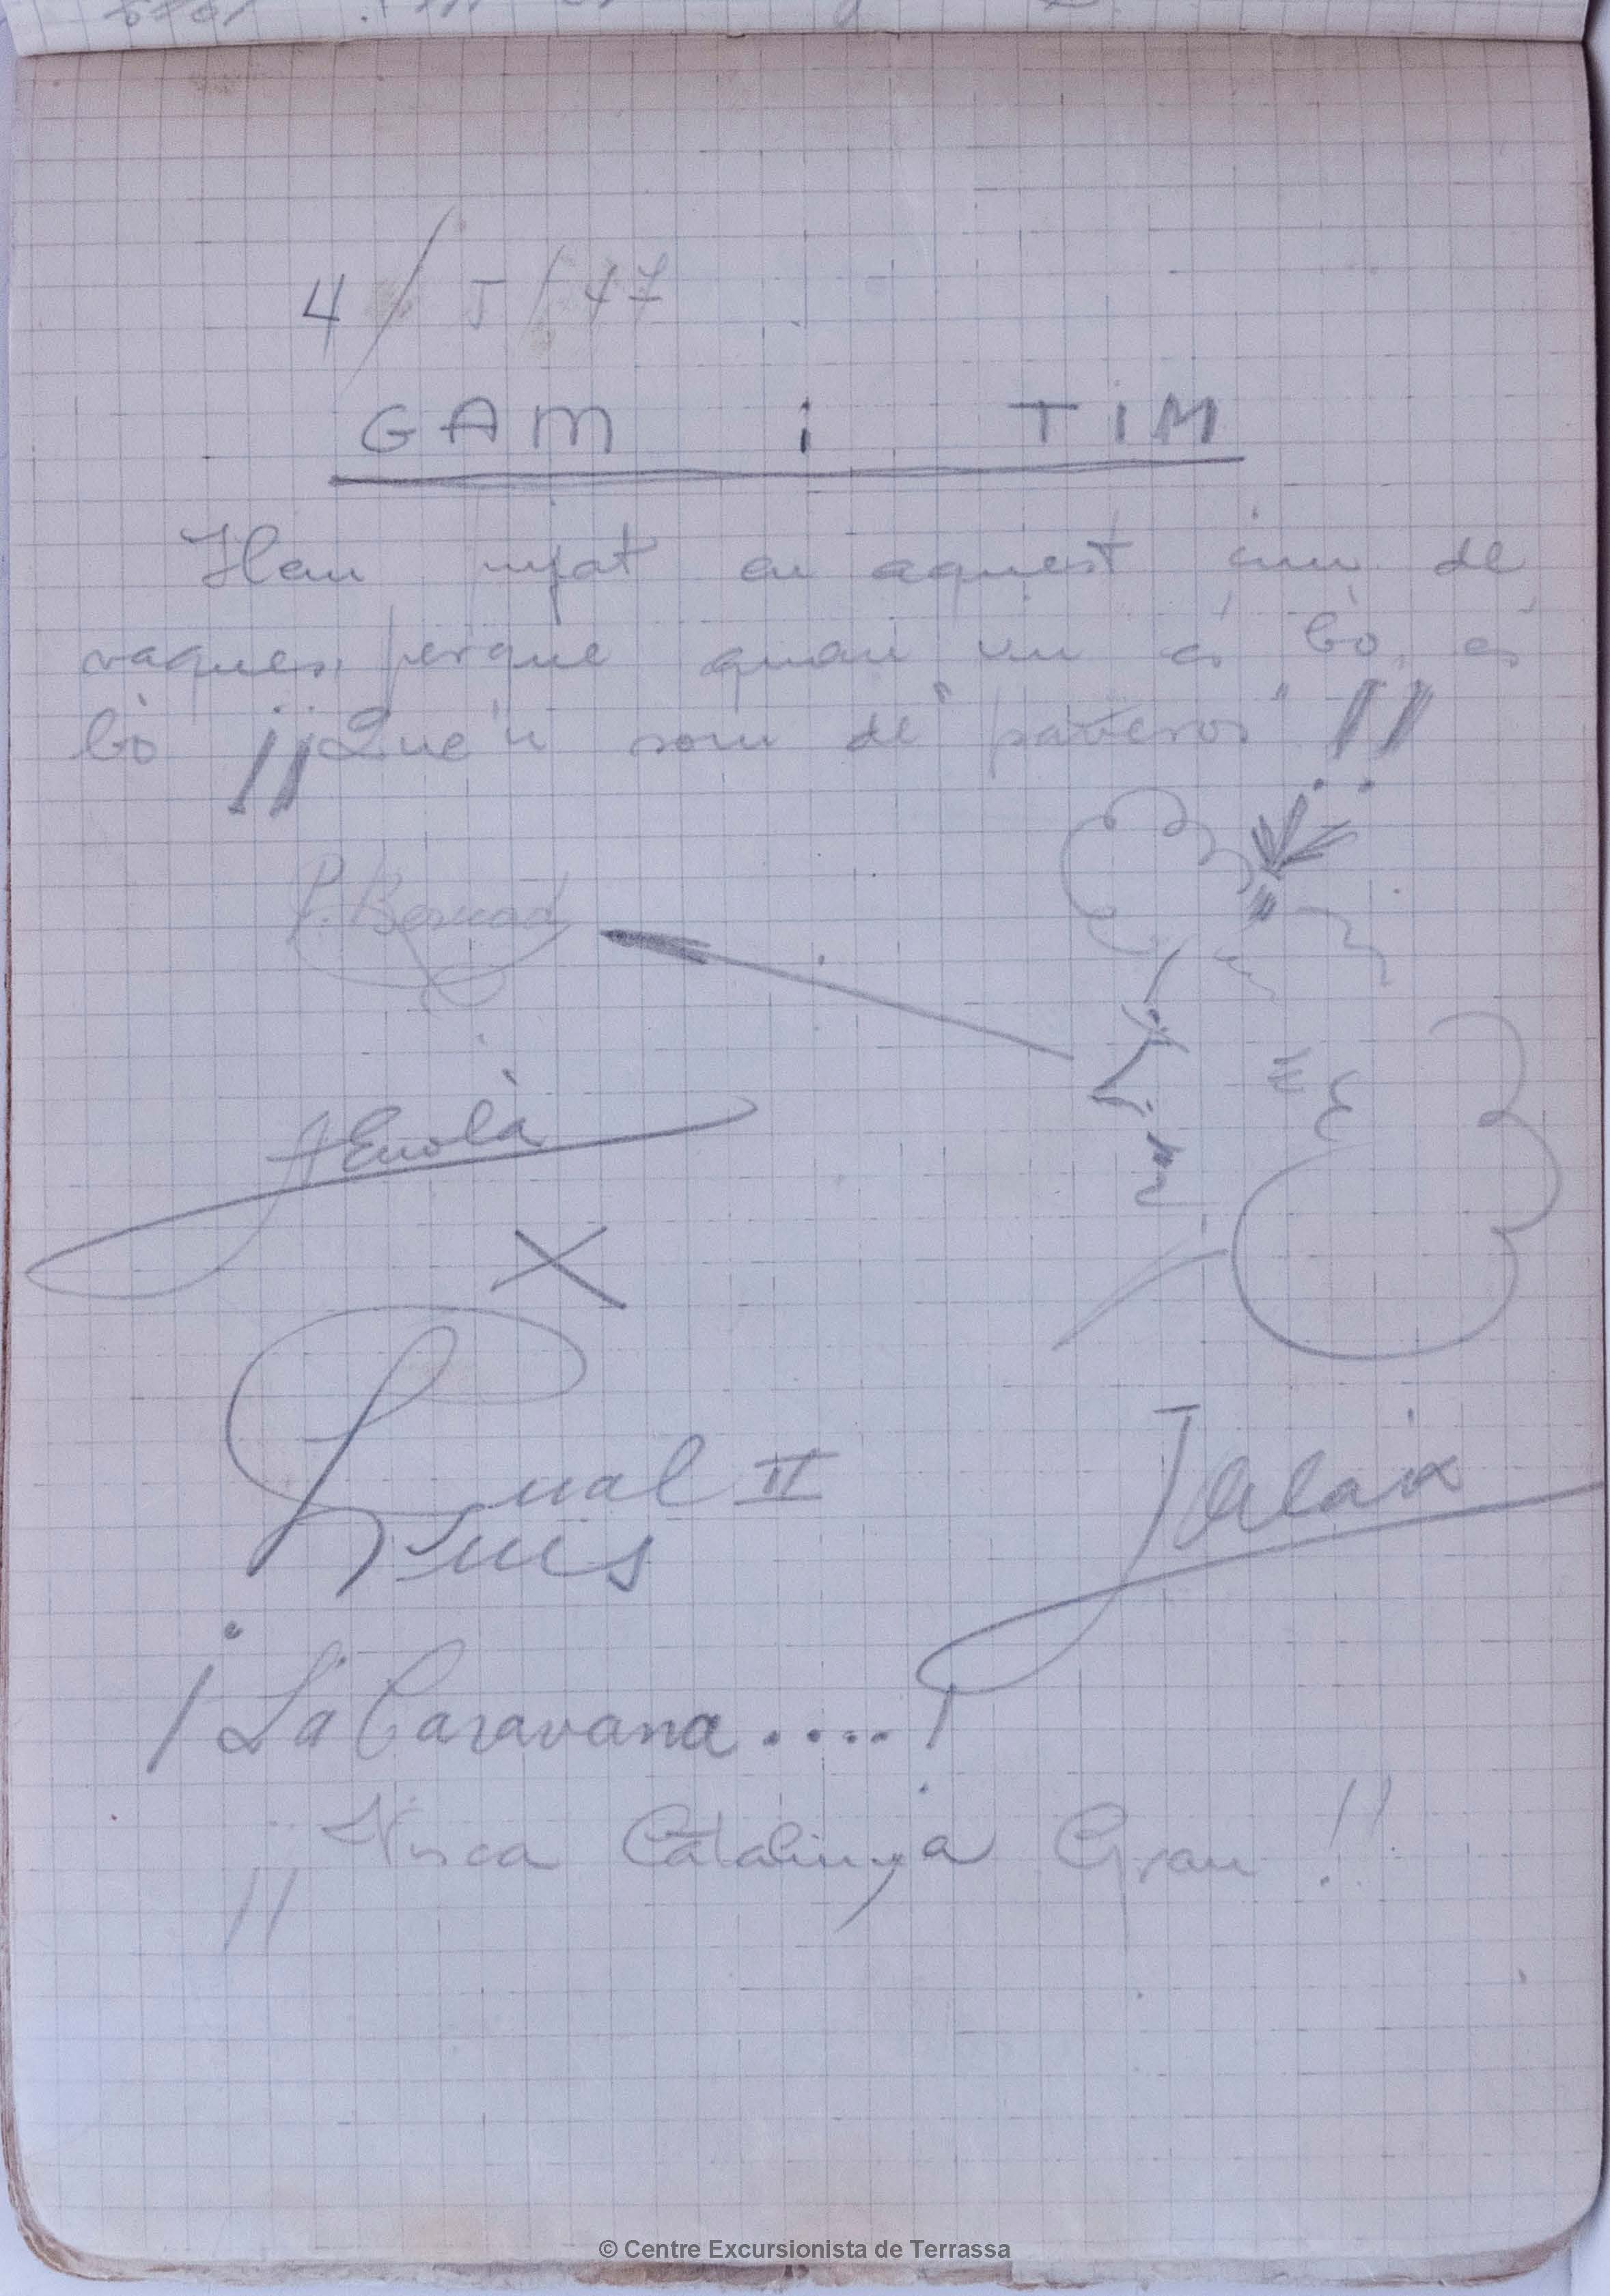 4 / 5 / 47
GAM i TIM
Han pujat en aquest cim de
vaques, perque quan un es bò, es
bò ¡¡Que'n som de "pateros"!!
P. Bernad
Gual II
Lluis
J Alaix
¡La Caravana....!
¡¡Visca Catalunya Gran!!
© Centre Excursionista de Terrassa